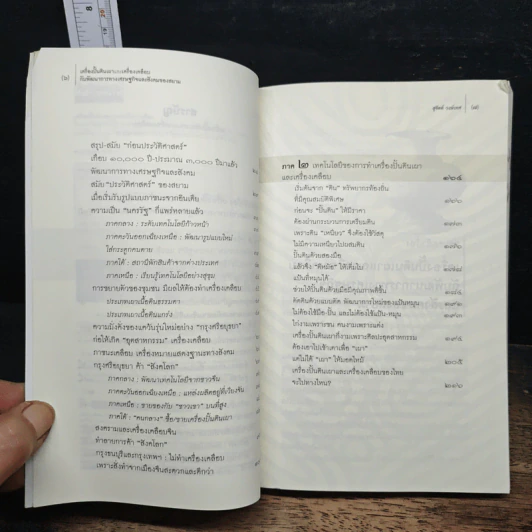 8
29
(๖)
เครื่องปั้นดินเผาและเครื่องเคลือบ
กับพัฒนาการทางเศรษฐกิจและสังคมของสยาม
สรุป-สมัย "ก่อนประวัติศาสตร์"
เกือบ ๑๐,๐๐๐ ปี-ประมาณ ๓,๐๐๐ ปีมาแล้ว
พัฒนาการทางเศรษฐกิจและสังคม
สมัย "ประวัติศาสตร์" ของสยาม
เมื่อเริ่มรับรูปแบบภาชนะจากอินเดีย
ความเป็น "นครรัฐ" ก็แพร่หลายแล้ว
ภาคกลาง : ระดับเทคโนโลยีก้าวหน้า
ภาคตะวันออกเฉียงเหนือ : พัฒนารูปแบบใหม่
ใส่กระดูกคนตาย
ภาคใต้ : สถานีพักสินค้าจากต่างประเทศ
ภาคเหนือ : เรียนรู้เทคโนโลยีอย่างสุขุม
การขยายตัวของชุมชน มีผลให้ต้องทำเครื่องเคลือบ
ประเภทเผาเนื้อดินธรรมดา
ประเภทเผาเนื้อดินแกร่ง
ความมั่งคั่งของแคว้นรุ่นใหม่อย่าง "กรุงศรีอยุธยา"
ก่อให้เกิด "อุตสาหกรรม" เครื่องเคลือบ
ภาชนะเคลือบ เครื่องหมายแสดงฐานะทางสังคม
กรุงศรีอยุธยา ค้า "สังคโลก"
ภาคกลาง : พัฒนาเทคโนโลยีจากชาวจีน
ภาคตะวันออกเฉียงเหนือ : แหล่งผลิตอยู่ที่เวียงจัน
ภาคเหนือ : ขายของกับ "ชาวเขา" บนที่สูง
ภาคใต้ : "คนกลาง" ซื้อ/ขายเครื่องปั้นดินเผา
สงครามและเครื่องเคลือบจีน
ทำลายการค้า "สังคโลก"
กรุงธนบุรีและกรุงเทพฯ : ไม่ทำเครื่องเคลือบ
เพราะสั่งทำจากเมืองจีนสะดวกและดีกว่า
สุจิตต์ วงษ์เทศ
(๗)
ภาค ๒ เทคโนโลยีของการทำเครื่องปั้นดินเผา
และเครื่องเคลือบ
เริ่มต้นจาก "ดิน" ทรัพยากรท้องถิ่น
ที่มีคุณสมบัติพิเศษ
ก่อนจะ "ปั้นดิน" ให้มีราคา
ต้องผ่านกระบวนการเตรียมดิน
เพราะดิน "เหนียว" จึงต้องใช้วัสดุ
ไม่มีความเหนียวไปผสมดิน
ปั้นดินด้วยสองมือ
แล้วจึง "ตีหม้อ" ให้เต็มใบ
แป้นที่หมุนได้
ช่วยให้ปั้นดินด้วยมือมีคุณภาพดีขึ้น
ตัดดินด้วยแบบตัด พัฒนาการใหม่ของแป้นหมุน
ไม่ต้องใช้มือ-ปั้น และไม่ต้องใช้แป้น-หมุน
ไก่งามเพราะขน คนงามเพราะแต่ง
เครื่องปั้นดินเผาก็งามเพราะศิลปะอุตสาหกรรม
ต้องเอาไปเข้าเตาเพื่อ "เผา"
แต่ไม่ได้ "เผา" ให้มอดไหม้
เครื่องปั้นดินเผาและเครื่องเคลือบของไทย
จะไปทางไหน?